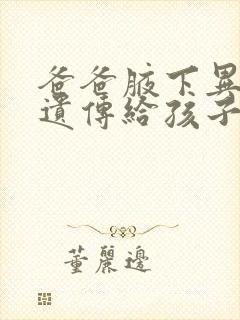 爸爸腋下異
遺傳給孩子
董麗邊